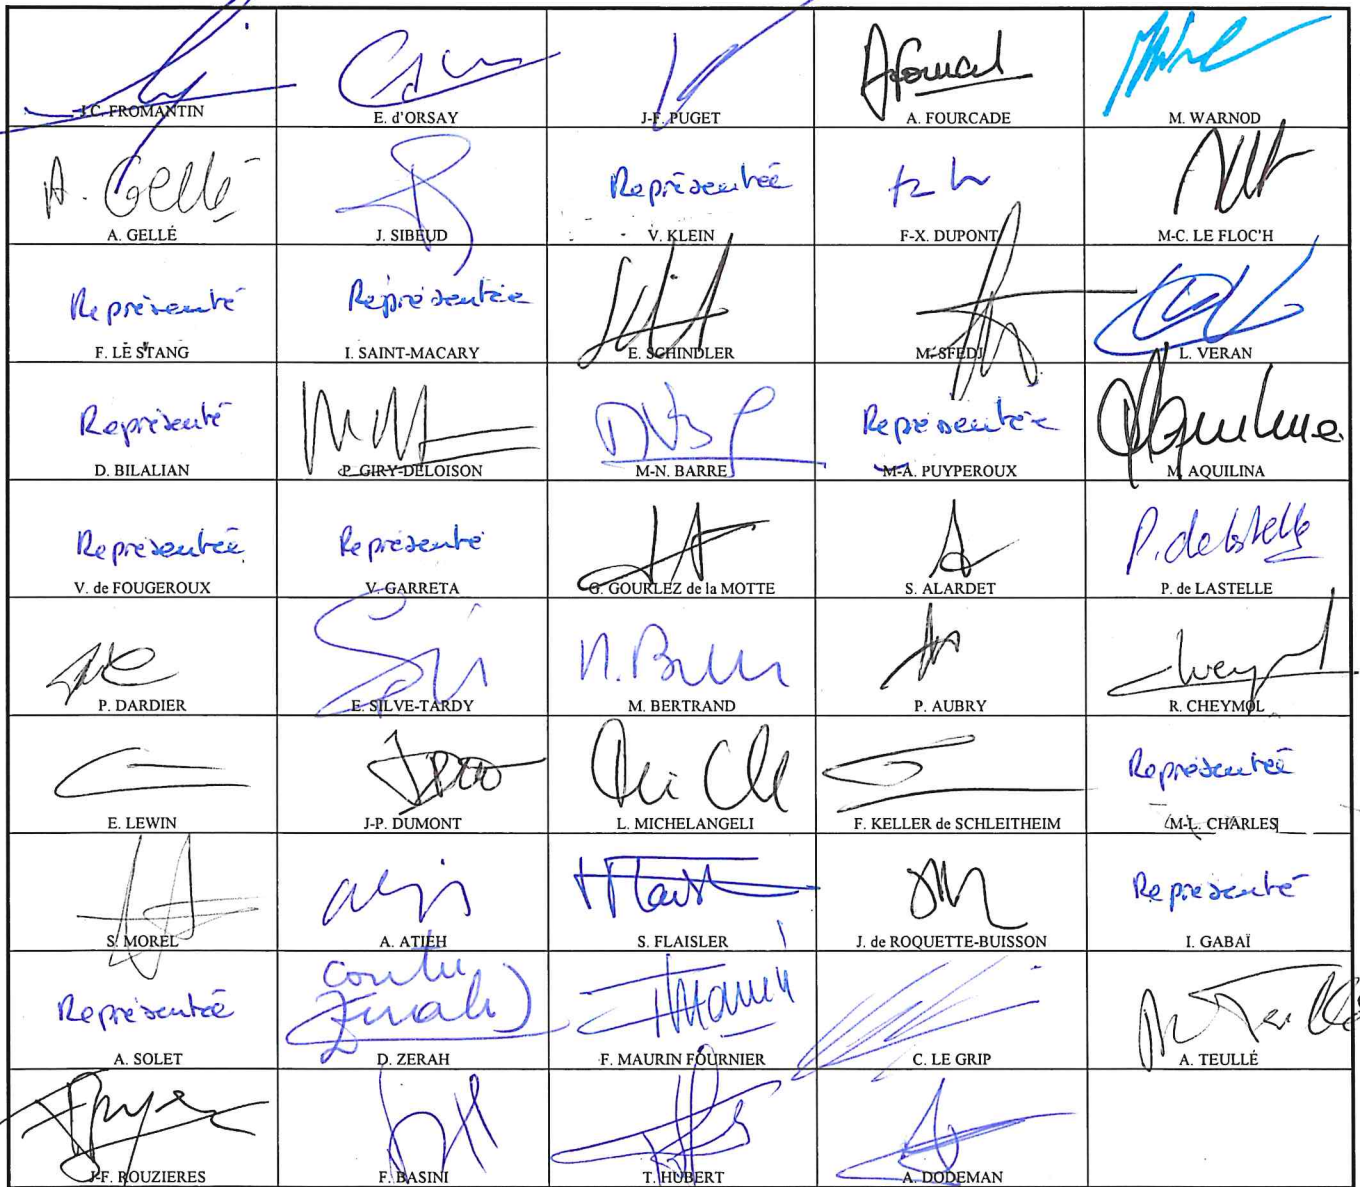 J.C. FROMANTIN
E. d'ORSAY
J-F. PUGET
A. FOURCADE
M. WARNOD
A. Gellé
A. GELLÉ
J. SIBEUD
Représentée
V. KLEIN
F-X. DUPONT
M-C. LE FLOC'H
Représenté
F. LE STANG
Représentée
I. SAINT-MACARY
E. SCHINDLER
M. SFEDJ
L. VERAN
Représenté
D. BILALIAN
P. GIRY-DELOISON
M-N. BARRE
Représentée
M-A. PUYPEROUX
Aquilina
M. AQUILINA
Représentée
V. de FOUGEROUX
Représenté
V. GARRETA
G. GOURLEZ de la MOTTE
S. ALARDET
P. de Lastelle
P. de LASTELLE
P. DARDIER
E. SILVE-TARDY
M. BERTRAND
P. AUBRY
R. CHEYMOL
E. LEWIN
J-P. DUMONT
L. MICHELANGELI
F. KELLER de SCHLEITHEIM
Représentée
M-L. CHARLES
S. MOREL
A. ATIEH
S. FLAISLER
J. de ROQUETTE-BUISSON
Représenté
I. GABAÏ
Représentée
A. SOLET
D. ZERAH
F. MAURIN FOURNIER
C. LE GRIP
A. TEULLÉ
J-F. ROUZIERES
F. BASINI
T. HUBERT
A. DODEMAN